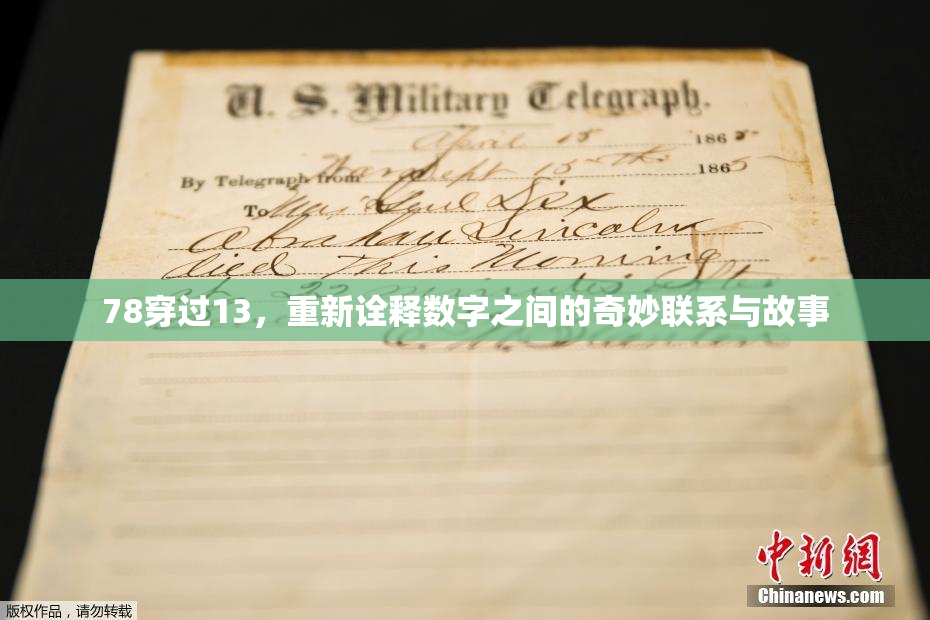 U. S. Military Telegraph.
April 15 1865
By Telegraph from War Dept 15th 1865
To Maj Genl Dix
Abraham Lincoln
died This Morning
at 22 minutes after
78穿过13，重新诠释数字之间的奇妙联系与故事
E. M. Stanton
中新网
Chinanews.com
版权作品，请勿转载